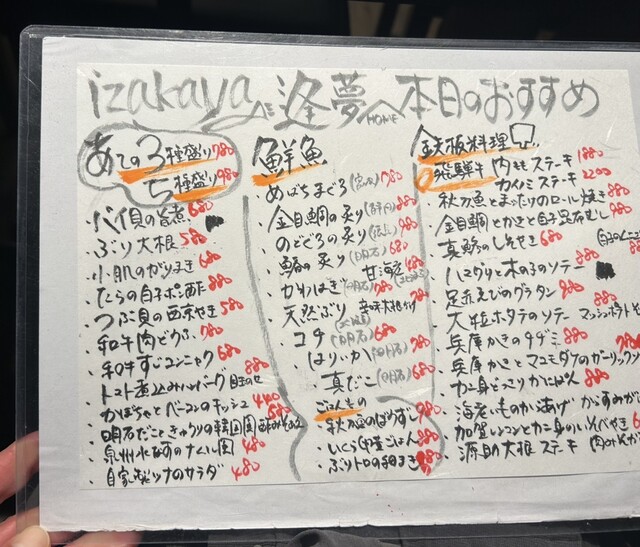 izakaya 逢夢 HOME 本日のおすすめ
あての3種盛り 780
5種盛り 980
バイ貝の旨煮 680
ぶり大根 580
小肌のガリまき 680
たらの白子ポン酢 880
つぶ貝の西京やき 580
和牛肉どうふ 780
和牛すじコンニャク 680
トマト煮込みハンバーグ 880
かぼちゃとベーコンのキッシュ 440
明石だこときゅうりの 680
泉州水なすの 480
自家製ツナのサラダ 480
鮮魚
めばちまぐろ 780
金目鯛の炙り 980
のどぐろの炙り 980
鰆の炙り (明石) 甘海老 480
かわはぎ 780
天然ぶり 辛味大根付
コチ (明石) 680
はりいか 780
真だこ (明石) 680
ごはんもの
秋刀魚のばらずし 980
いくら ごはん 880
ぶりトロの細まき 980
鉄板料理
飛騨牛 内もも ステーキ 1880
カイノミ ステーキ 2200
秋刀魚とまったけのロール焼き 880
金目鯛とかきと白子昆布むし 980
真鯵のしそやき 680
ハマグリと木の子のソテー
足赤えびのグラタン 980
大粒ホタテのソテー マッシュポテト
兵庫かきのタダミ 880
兵庫かきとマコモダケのガーリック
カニ身どっさりかにぱん 880
海老いものかあげ
加賀レンコンとカニ身の
源助大根ステーキ